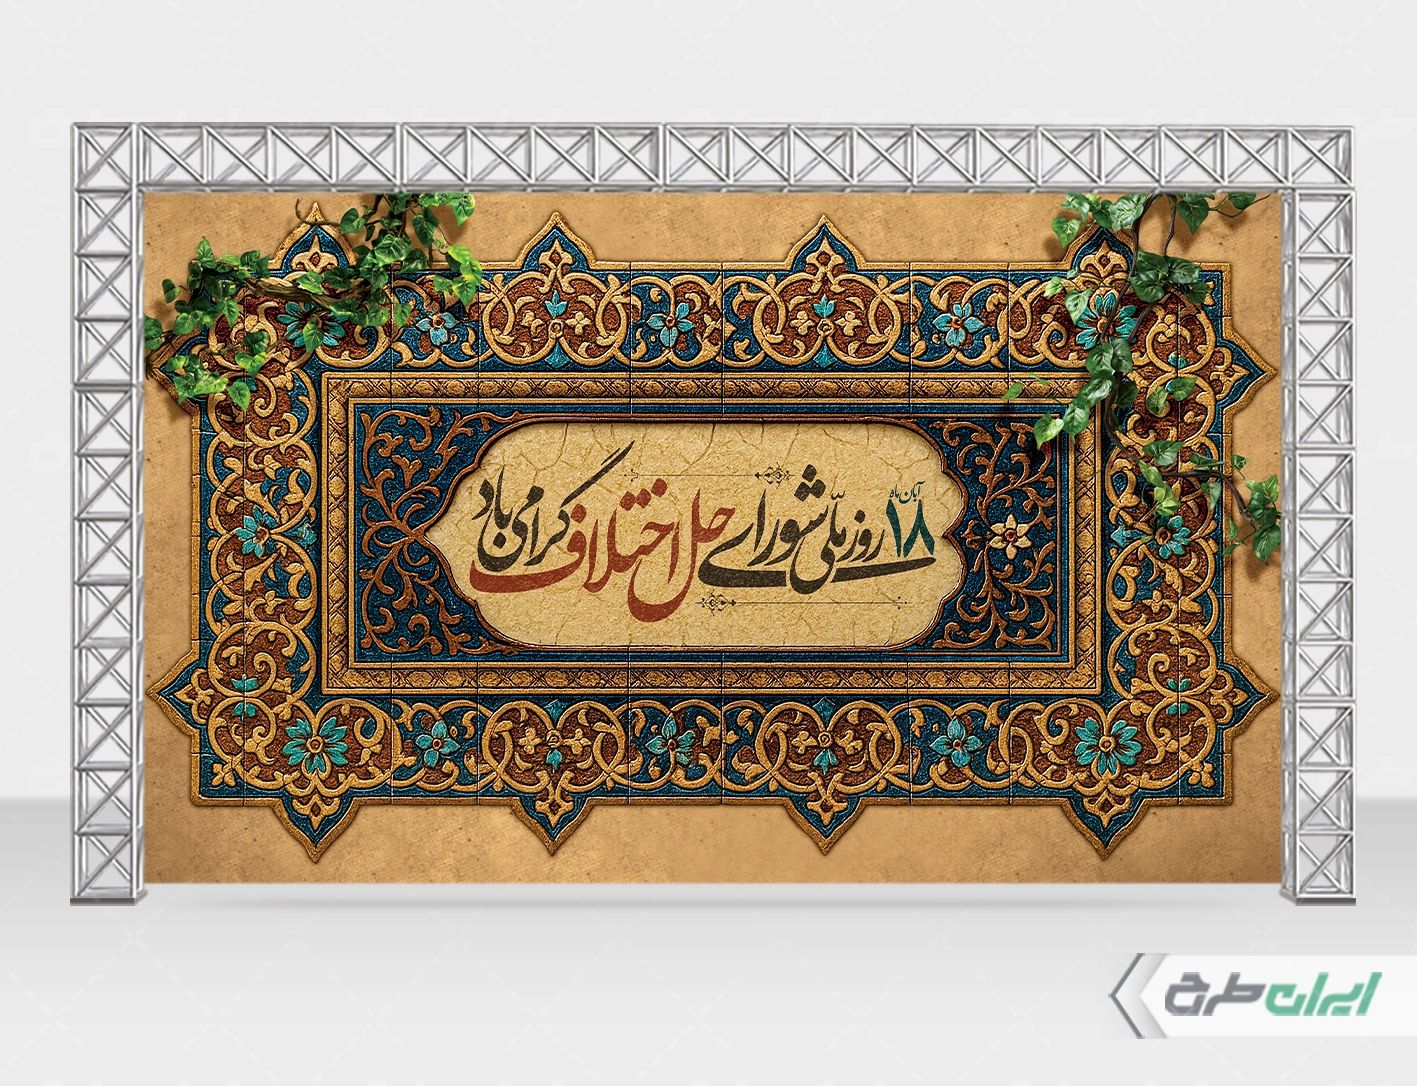 ۱۸ آبان ماه روز ملّی شورای حل اختلاف گرامی باد
ایران طرح